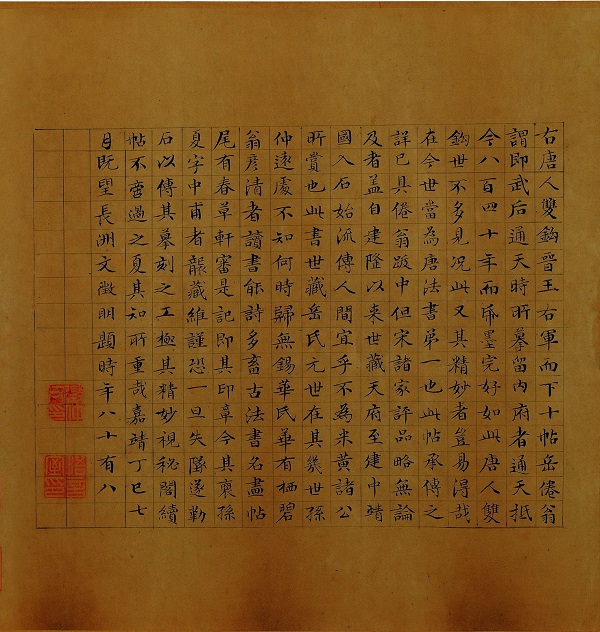 右唐人雙鈎晉王右軍而下十帖岳倦翁
謂即武后通天時所摹留内府者通天抵
今八百四十年而帋墨完好如此唐人雙
鈎世不多見況此又其精妙者豈易得哉
在今世當為唐法書第一也此帖承傳之
詳已具倦翁跋中但宋諸家評品略無論
及者盖自建隆以来世藏天府至建中靖
國入石始流傳人間宜乎不為米黃諸公
所賞也此書世藏岳氏元世在其幾世孫
仲遠處不知何時歸無錫華氏華有栖碧
翁彦清者讀書能詩多畜古法書名畫帖
尾有春草軒審是記即其印章今其裔孫
夏字中甫者襲藏維謹恐一旦失墜遂勒
石以傳其摹刻之工極其精妙視秘閣續
帖不啻過之夏其知所重哉嘉靖丁巳七
月既望長洲文徵明題時年八十有八